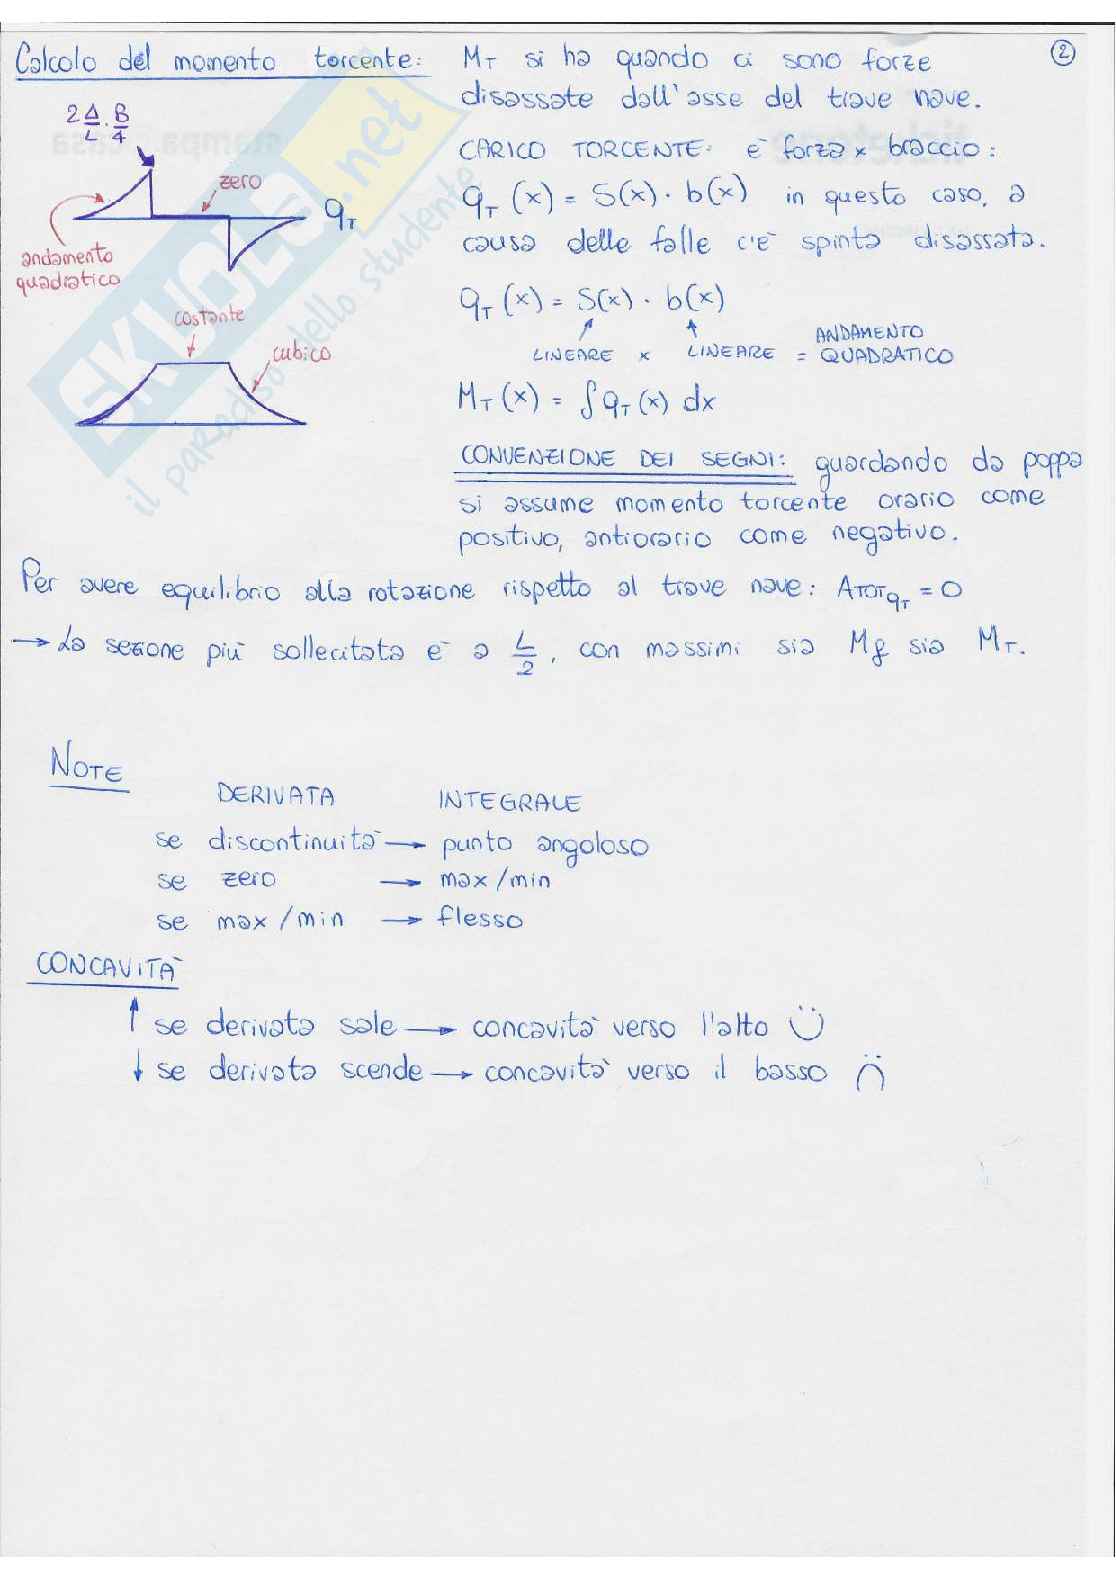 Calcolo del momento torcente: MT si ha quando ci sono forze
2
disassate dall'asse del trave nave.
2Δ/L · B/4
CARICO TORCENTE: è forza x braccio:
zero
qT
qT (x) = S(x) · b(x) in questo caso, a
causa delle falle c'è spinta disassata.
andamento
quadratico
qT (x) = S(x) · b(x)
LINEARE x LINEARE = ANDAMENTO QUADRATICO
costante
cubico
MT (x) = ∫ qT (x) dx
CONVENZIONE DEI SEGNI: guardando da poppa
si assume momento torcente orario come
positivo, antiorario come negativo.
Per avere equilibrio alla rotazione rispetto al trave nave: ATOT qT = 0
→ La sezione più sollecitata è a L/2, con massimi sia Mf sia MT.
NOTE
DERIVATA INTEGRALE
se discontinuità → punto angoloso
se zero → max/min
se max/min → flesso
CONCAVITÀ
↑ se derivata sale → concavità verso l'alto
↓ se derivata scende → concavità verso il basso
SKUOLA.net
il paradiso dello studente
stampa casa